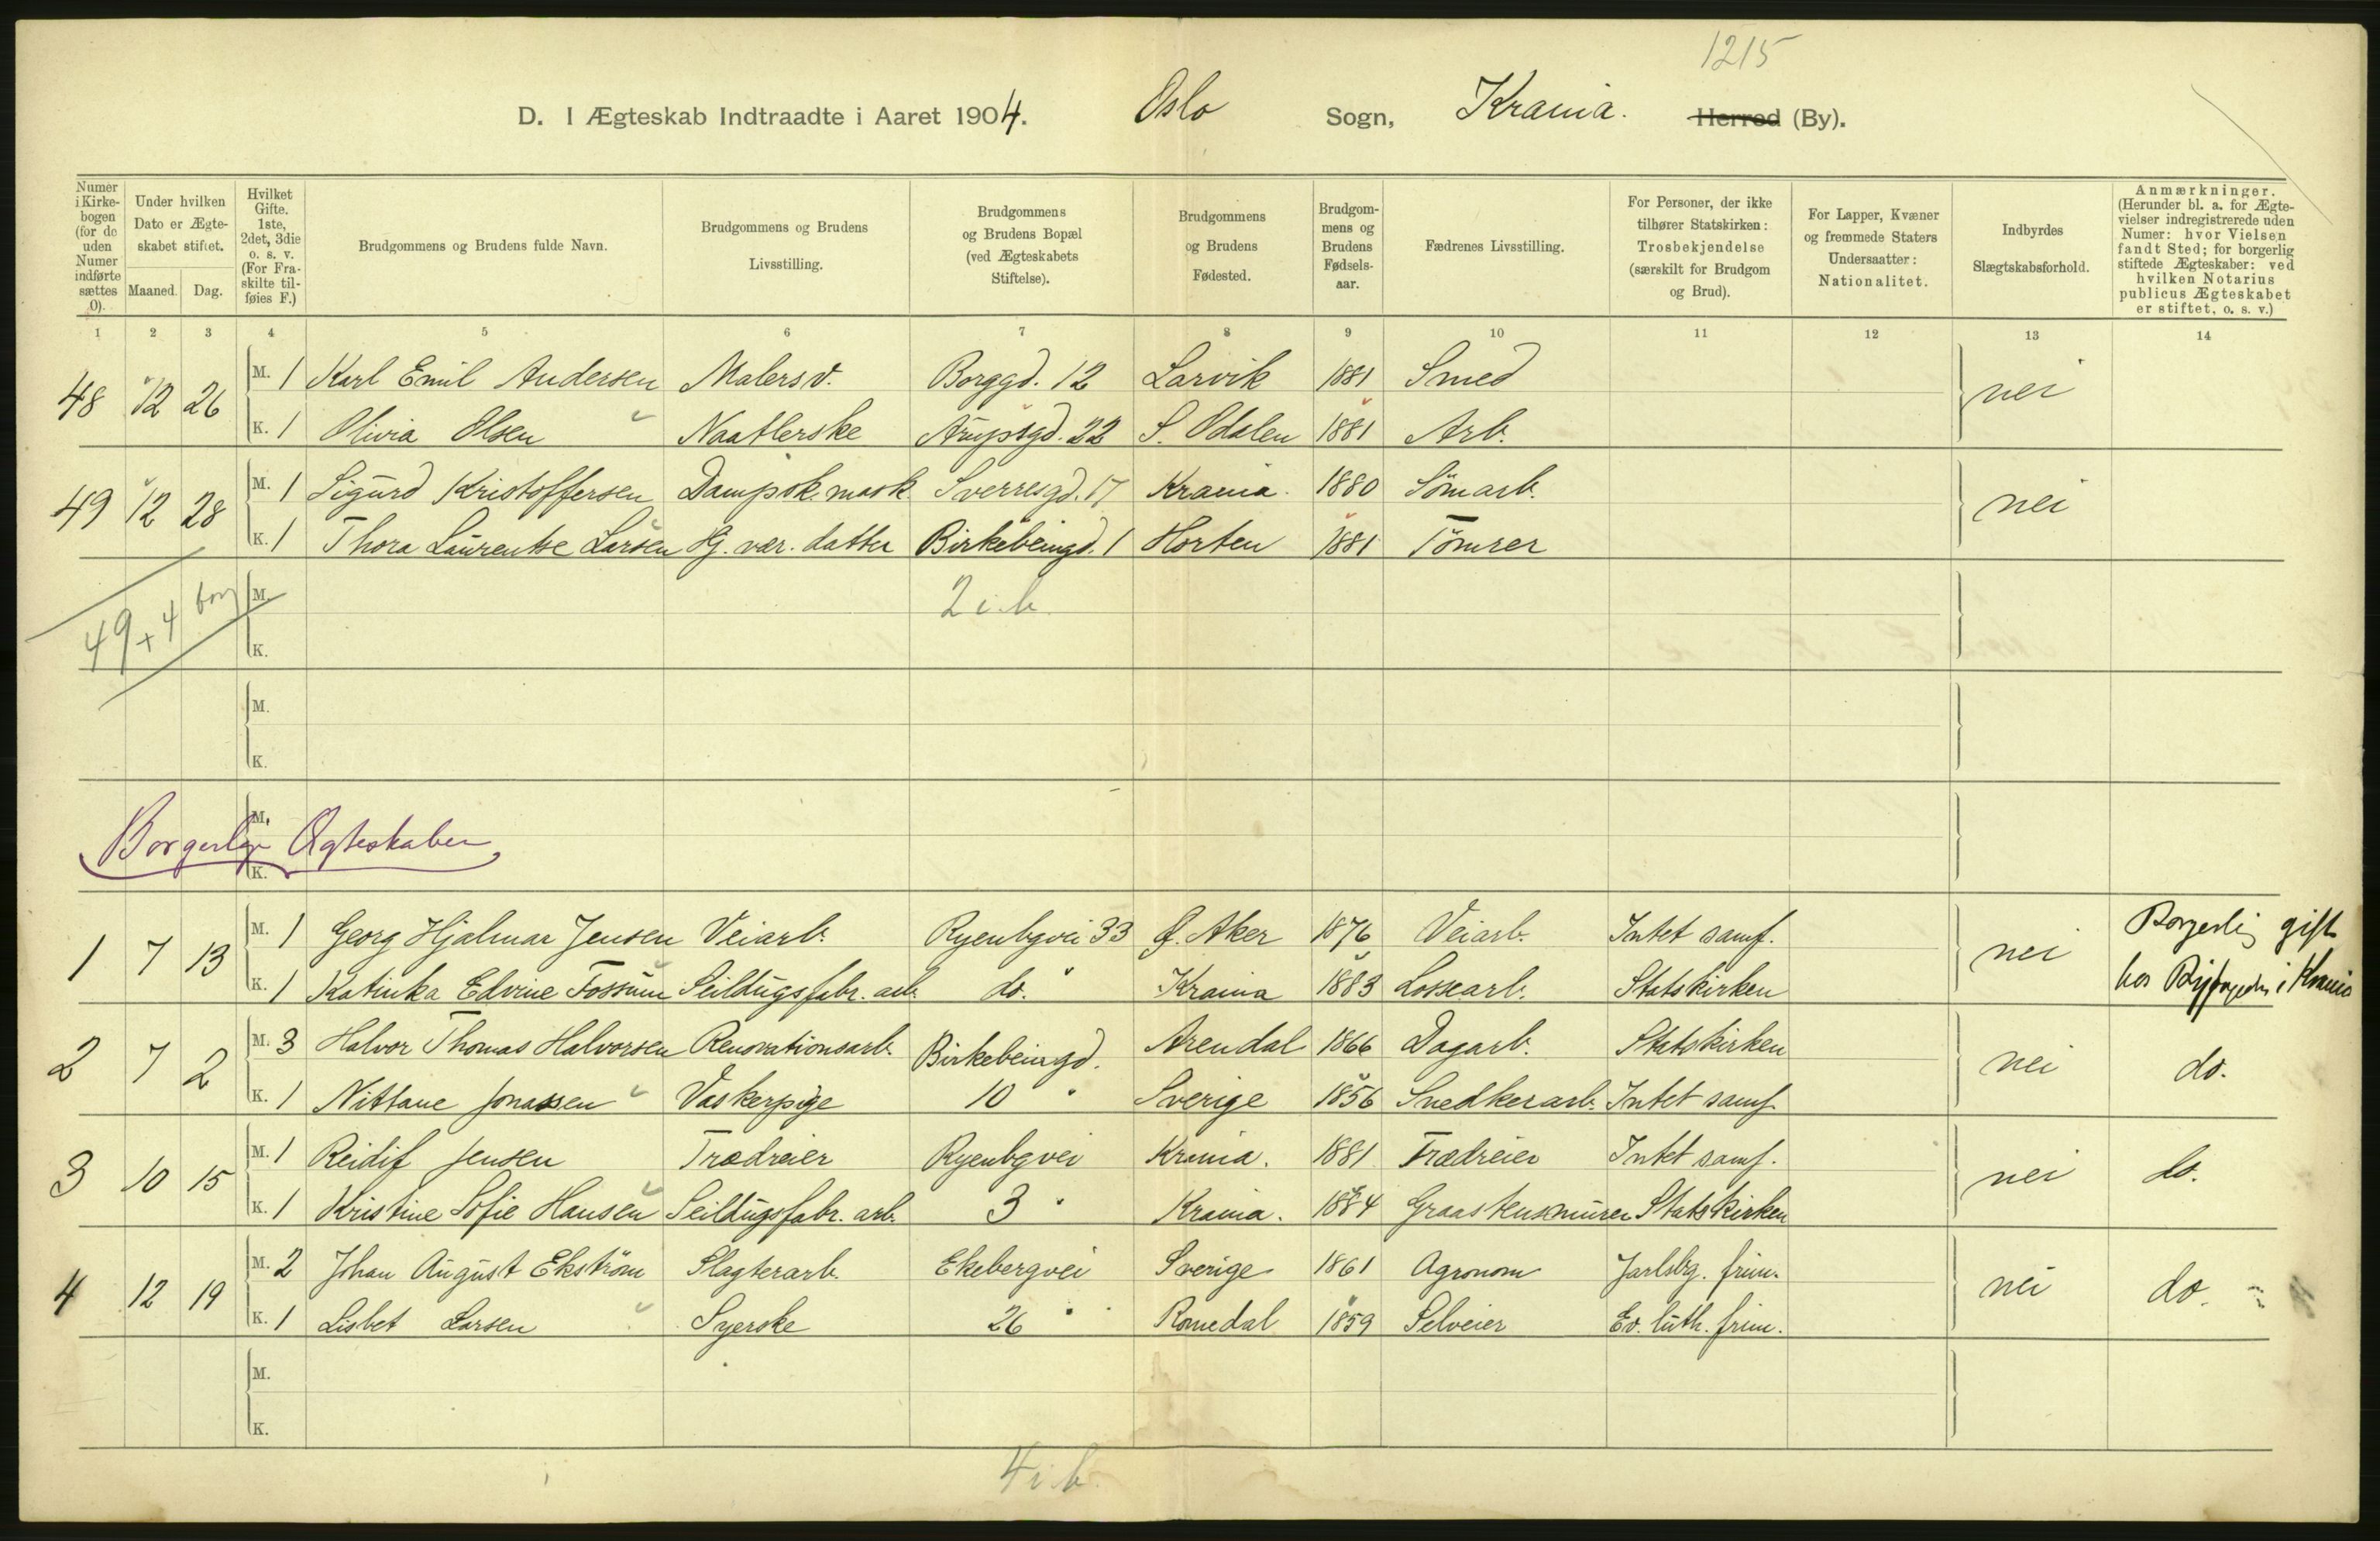 1215
D. I Ægteskab Indtraadte i Aaret 1904. Oslo Sogn, Krania. Herred (By).
Numer i Kirkebogen (for de uden Numer indførte sættes 0).
Under hvilken Dato er Ægteskabet stiftet.
Maaned. Dag.
Hvilket Gifte. 1ste, 2det, 3die o. s. v. (For Fraskilte tilføies F.)
Brudgommens og Brudens fulde Navn.
Brudgommens og Brudens Livsstilling.
Brudgommens og Brudens Bopæl (ved Ægteskabets Stiftelse).
Brudgommens og Brudens Fødested.
Brudgommens og Brudens Fødselsaar.
Fædrenes Livsstilling.
For Personer, der ikke tilhører Statskirken: Trosbekjendelse (særskilt for Brudgom og Brud).
For Lapper, Kvæner og fremmede Staters Undersaatter: Nationalitet.
Indbyrdes Slægtskabsforhold.
Anmærkninger. (Herunder bl. a. for Ægtevielser indregistrerede uden Numer: hvor Vielsen fandt Sted; for borgerlig stiftede Ægteskaber: ved hvilken Notarius publicus Ægteskabet er stiftet, o. s. v.)
1 2 3 4 5 6 7 8 9 10 11 12 13 14
48 12 26 M. 1 Karl Emil Andersen Malersv. Borggd. 12 Larvik 1881 Smed nei
K. 1 Olivia Olsen Naatlerske Arupsgd. 22 S. Odalen 1881 Arb.
49 12 28 M. 1 Sigurd Kristoffersen Dampsk. mask. Sverresgd. 17 Krania. 1880 Sömarb. nei
K. 1 Thora Laurentse Larsen Hj. vær. datter Birkebeingd. 1 Horten 1881 Tömrer
49 + 4 borg M. 2 i. b.
K.
M.
K.
M.
Borgerlige Ægteskaber
K.
1 7 13 M. 1 Georg Hjalmar Jensen Veiarb. Ryenbgvei 33 Ø. Aker 1876 Veiarb. Intet samf. nei Borgerlig gift
K. 1 Katinka Edvine Fossum Seildugsfabr. arb. do. Krania 1883 Lossearb. Statskirken hos Byfogden i Krania
2 7 2 M. 3 Halvor Thomas Halvorsen Renovationsarb. Birkebeingd. Arendal 1866 Dagarb. Statskirken nei do.
K. 1 Nittane Jonassen Vaskerpige 10 Sverige 1856 Snedkerarb. Intet samf.
3 10 15 M. 1 Reidif Jensen Trædreier Ryenbgvei Krania. 1881 Trædreier Intet samf. nei do.
K. 1 Kristine Sofie Hansen Seildugsfabr. arb. 3 Krania. 1884 Graastensmurer Statskirken
4 12 19 M. 2 Johan August Ekström Slagterarb. Ekebergvei Sverige 1861 Agronom Jarlsbg. frim. nei do.
K. 1 Lisbet Larsen Syerske 26 Romedal 1859 Selveier Ev. luth. frim.
M.
K.
4 i. b.